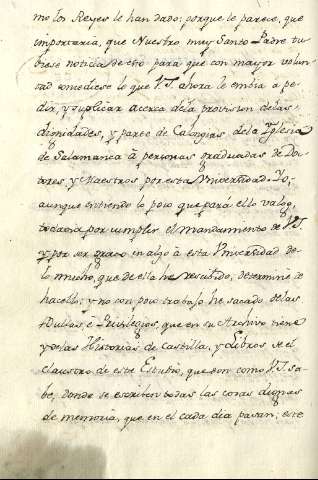 mo los Reyes le han dado; porque le parece, que
importaria, que Nuestro muy Santo Padre tu-
biese noticia de esto para que con mayor volun-
tad concediese lo que V.S. ahora le embia a pe-
dir, y suplicar acerca de la provision de las
dignidades, y parte de Calongias de la Iglesia
de Salamanca à personas graduadas de Doc-
tores, y Maestros por esta Universidad. Yo,
aunque entiendo lo poco que para ello valgo,
todavia por cumplir el mandamiento de V.S.
y por ser grato en algo à esta Universidad de
lo mucho, que de ella he recibido, determine de
hacello; y no con poco trabajo he sacado de las
Bullas, è Privilegios, que en su Archivo tiene
y de las Historias de Castilla, y Libros de el
Claustro de este Estudio, que son como V.S. sa-
be, donde se escriben todas las cosas dignas
de memoria, que en el cada dia pasan; este